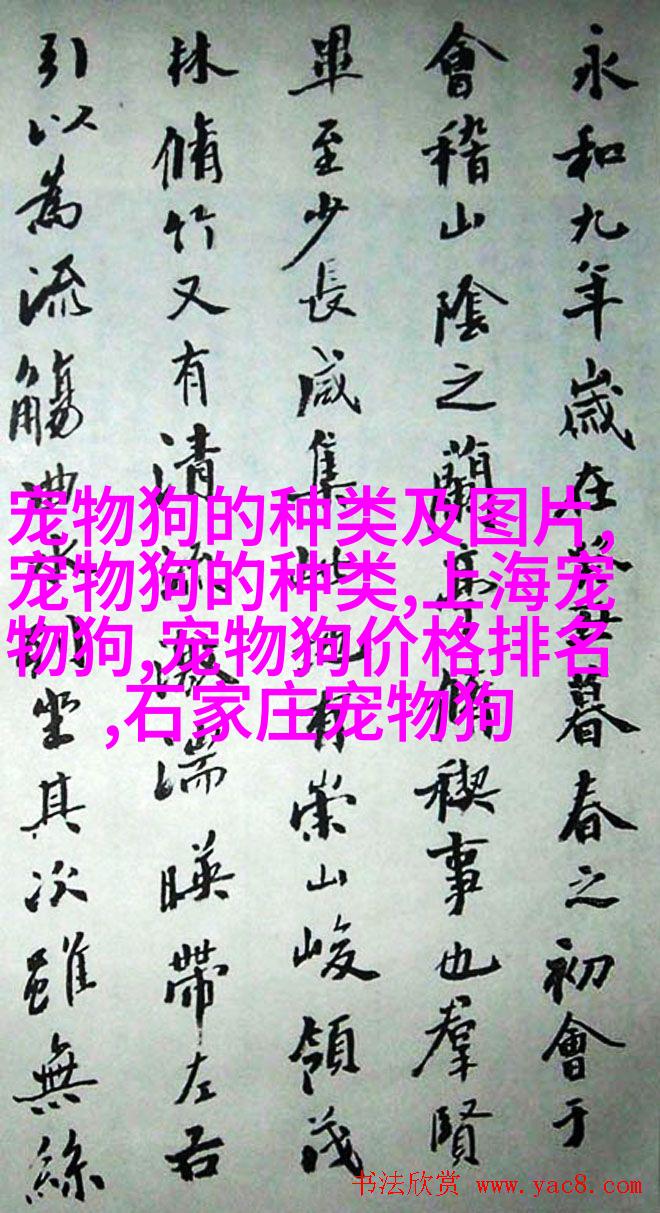 永和九年歲在癸丑暮春之初會于
會稽山陰之蘭亭脩稧事也羣賢
畢至少長咸集此地有崇山峻領茂
林脩竹又有清流激湍暎帶左右
引以為流觴曲水列坐其次雖無絲
宠物狗的种类及图片,
宠物狗的种类,上海宠
物狗,宠物狗价格排名
,石家庄宠物狗
书法欣赏 www.yac8.com